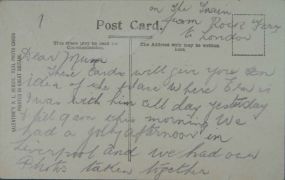 1
on the Train
from Rock Ferry
to London
Post Card.
This space may be used for Communication.
The Address only to be written here.
Dear Mum
These cards will give you an
idea of the place where Ern is
I was with him all day yesterday
till again this morning We
had a jolly afternoon in
Liverpool and we had our
Photos taken together